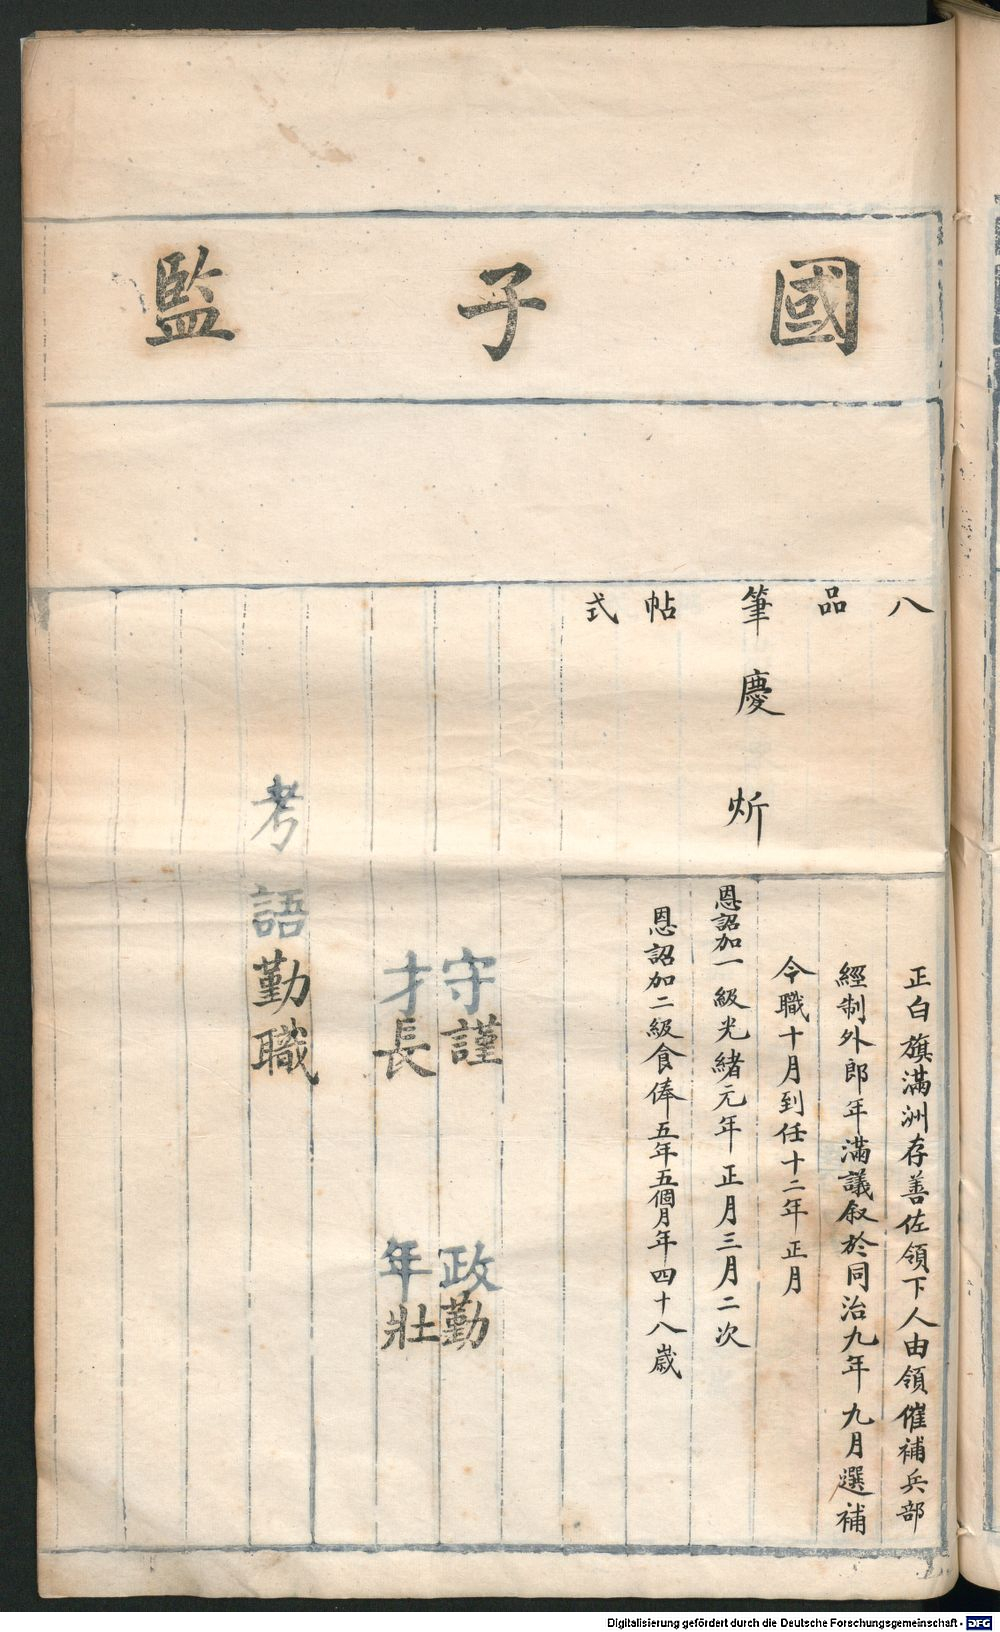 國子監
八品筆帖式
慶炘
正白旗滿洲存善佐領下人由領催補兵部
經制外郎年滿議叙於同治九年九月選補
今職十月到任十二年正月
恩詔加一級光緒元年正月三月二次
恩詔加二級食俸五年五個月年四十八歲
守謹 政勤
才長 年壯
考語勤職
Digitalisierung gefördert durch die Deutsche Forschungsgemeinschaft - DFG